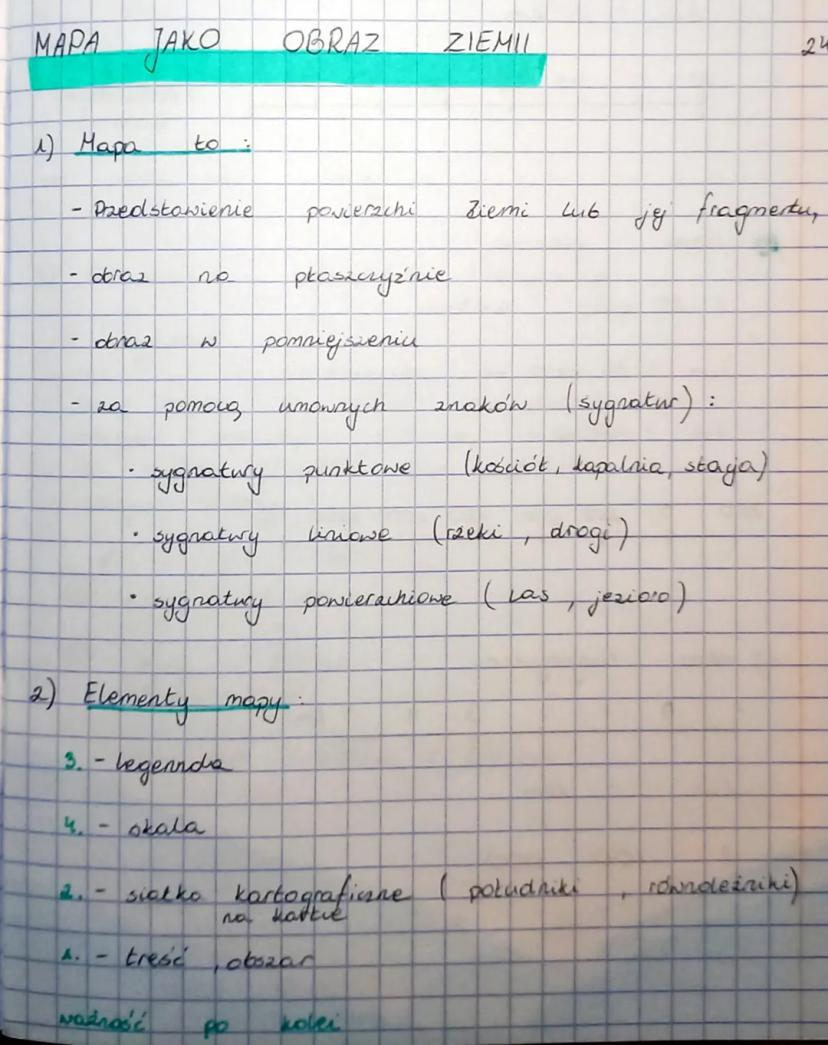 MAPA JAKO OBRAZ ZIEMII 24
1) Mapa to:
- Przedstawienie powierzchi Ziemi lub jej fragmentu,
- obraz na płaszczyźnie
- obraz w pomniejszeniu
- za pomocą umownych znaków (sygnatur):
· sygnatury punktowe (kościół, kopalnia, stacja)
· sygnatury liniowe (rzeki, drogi)
· sygnatury powierzchiowe (Las, jezioro)
2) Elementy mapy:
3. - legennda
4. - skala
2. - siatka kartograficzne (południki, równoleżniki)
na kartce
1. - treść, obszar
ważność po kolei